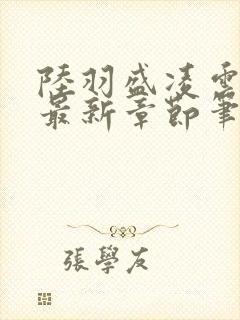 陸羽盛凌雲
最新章節筆
張學友